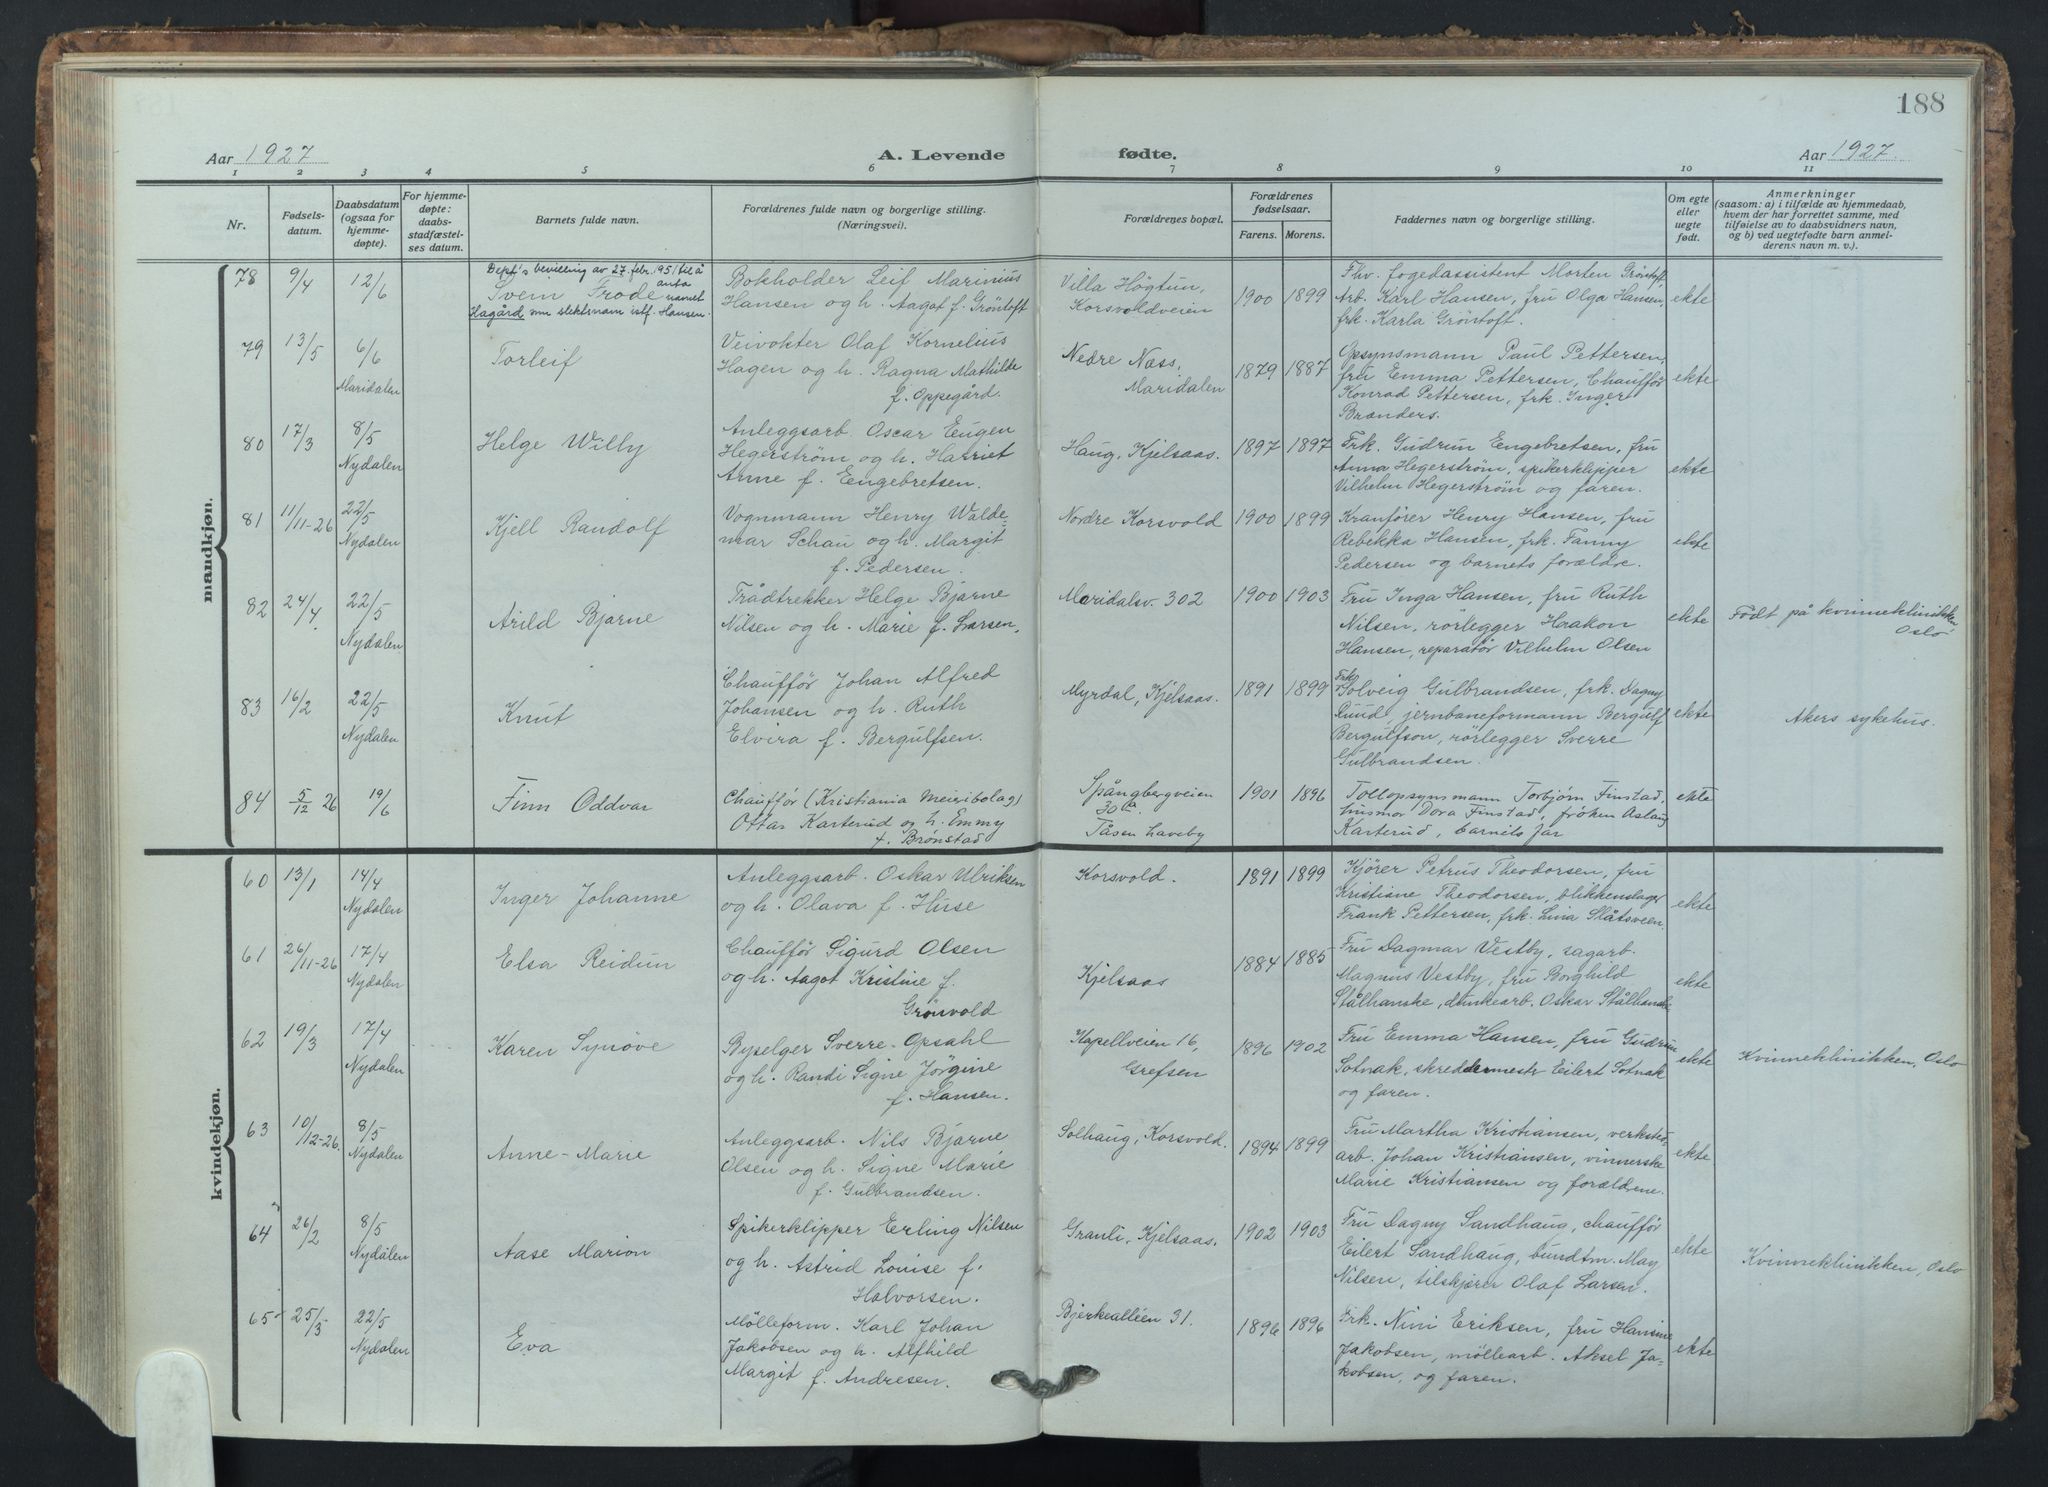 188
Aar 1927
A. Levende
fødte.
Aar 1927.
1 2 3 4 5 6 7 8 9 10 11
Nr.
Fødsels-
datum.
Daabsdatum
(ogsaa for
hjemme-
døpte).
For hjemme-
døpte:
daabs-
stadfæstel-
ses datum.
Barnets fulde navn.
Forældrenes fulde navn og borgerlige stilling.
(Næringsvei).
Forældrenes bopæl.
Forældrenes
fødselsaar.
Farens. Morens.
Faddernes navn og borgerlige stilling.
Om egte
eller
uegte
født.
Anmerkninger
(saasom: a) i tilfælde av hjemmedaab,
hvem der har forrettet samme, med
tilføielse av to daabsvidners navn,
og b) ved uegtefødte barn anmel-
derens navn m. v.).
mandkjøn.
78 9/4 12/6
Dept's bevilling av 27. febr. 1951 til å
anta
Svein Frode navnet
Hagård som slektsnavn istf. Hansen.
Bokholder Leif Marinius
Hansen og h. Aagot f. Gröntoft
Villa Högtun,
Korsvoldveien
1900 1899
Fhv. fogedassistent Morten Gröntoft,
Arb. Karl Hansen, fru Olga Hansen,
frk. Karla Gröntoft.
ekte
79 13/5 6/6
Maridalen
Torleif
Veivokter Olaf Kornelius
Hagen og h. Ragna Mathilde
f. Oppegård.
Nedre Næss,
Maridalen
1879 1887
Opsynsmann Paul Pettersen,
fru Emma Pettersen, Chauffør
Konrad Pettersen, frk. Inger
Branders.
ekte
80 17/3 8/5
Nydalen
Helge Willy
Anleggsarb. Oscar Eugen
Hegerstrøm og h. Harriet
Anne f. Engebretsen.
Haug, Kjelsaas.
1897 1897
Frk. Gudrun Engebretsen, fru
Anna Hegerstrøm, spikerklipper
Vilhelm Hegerstrøm og faren.
ekte
81 11/11-26 22/5
Nydalen
Kjell Randolf
Vognmann Henry Walde-
mar Schau og h. Margit
f. Pedersen.
Nordre Korsvold
1900 1899
Kranfører Henry Hansen, fru
Rebekka Hansen, frk. Fanny
Pedersen og barnets forældre.
ekte
82 24/4 22/5
Nydalen
Arild Bjarne
Trådtrekker Helge Bjarne
Nilsen og h. Marie f. Larsen.
Maridalsv. 302
1900 1903
Fru Inga Hansen, fru Ruth
Nilsen, rörlegger Haakon
Hansen, reparatør Vilhelm Olsen
ekte
Födt på kvinneklinikken
Oslo
83 16/2 22/5
Nydalen
Knut
Chauffør Johan Alfred
Johansen og h. Ruth
Elvira f. Bergulfsen.
Myrdal, Kjelsaas.
1891 1899
Frk.
Solveig Gulbrandsen, frk. Dagny
Ruud, jernbaneformann Bergulf
Bergulfson, rörlegger Sverre
Gulbrandsen.
ekte
Akers sykehus.
84 5/12 26 19/6
Finn Oddvar
Chauffør (Kristiania Meieribolag)
Ottar Karterud og h. Emmy
f. Brønstad
Spångbergveien
30 a.
Tåsen haveby
1901 1896
Tollopsynsmann Torbjørn Finstad,
husmor Dora Finstad, frøken Aslaug
Karterud, barnets far
ekte
kvindekjøn.
60 13/1 14/4
Nydalen
Inger Johanne
Anleggsarb. Oskar Ulriksen
og h. Olava f. Huse
Korsvold.
1891 1899
Kjörer Petrus Theodorsen, fru
Kristine Theodorsen, blikkenslager
Frank Pettersen, frk. Lina Slåtsveen.
ekte
61 26/11-26 17/4
Nydalen
Elsa Reidun
Chauffør Sigurd Olsen
og h. Aagot Kristine f.
Grönvold
Kjelsaas
1884 1885
Fru Dagmar Vestby, sagarb.
Magnus Vestby, fru Borghild
Stålhanske, dunkearb. Oskar Stålhanske
ekte
62 19/3 17/4
Nydalen
Karen Synöve
Byselger Sverre Opsahl
og h. Randi Signe Jörgine
f. Hansen.
Kapellveien 16,
Grefsen
1896 1902
Fru Emma Hansen, fru Gudrun
Sotnak, skreddermestr Eilert Sotnak
og faren.
ekte
Kvinneklinikken, Oslo
63 10/12-26. 8/5
Nydalen
Anne-Marie
Anleggsarb. Nils Bjarne
Olsen og h. Signe Marie
f. Gulbrandsen.
Solhaug, Korsvold.
1894 1899
Fru Martha Kristiansen, verksted-
arb. Johan Kristiansen, vinnerske
Marie Kristiansen og forældrene.
ekte
64 26/2 8/5
Nydalen
Aase Marion
Spikerklipper Erling Nilsen
og h. Astrid Louise f.
Halvorsen.
Granli, Kjelsaas.
1902 1903
Fru Dagny Sandhaug, chauffør
Eilert Sandhaug, bundtm. May
Nilsen, tilskjærer Olaf Larsen.
ekte
Kvinneklinikken, Oslo
65 25/3 22/5
Nydalen
Eva
Mölleform. Karl Johan
Jakobsen og h. Alfhild
Margit f. Andresen.
Bjerkealleen 31.
1896 1896
Frk. Nini Eriksen, fru Hansine
Jakobsen, möllearb. Aksel Ja-
kobsen, og faren.
ekte